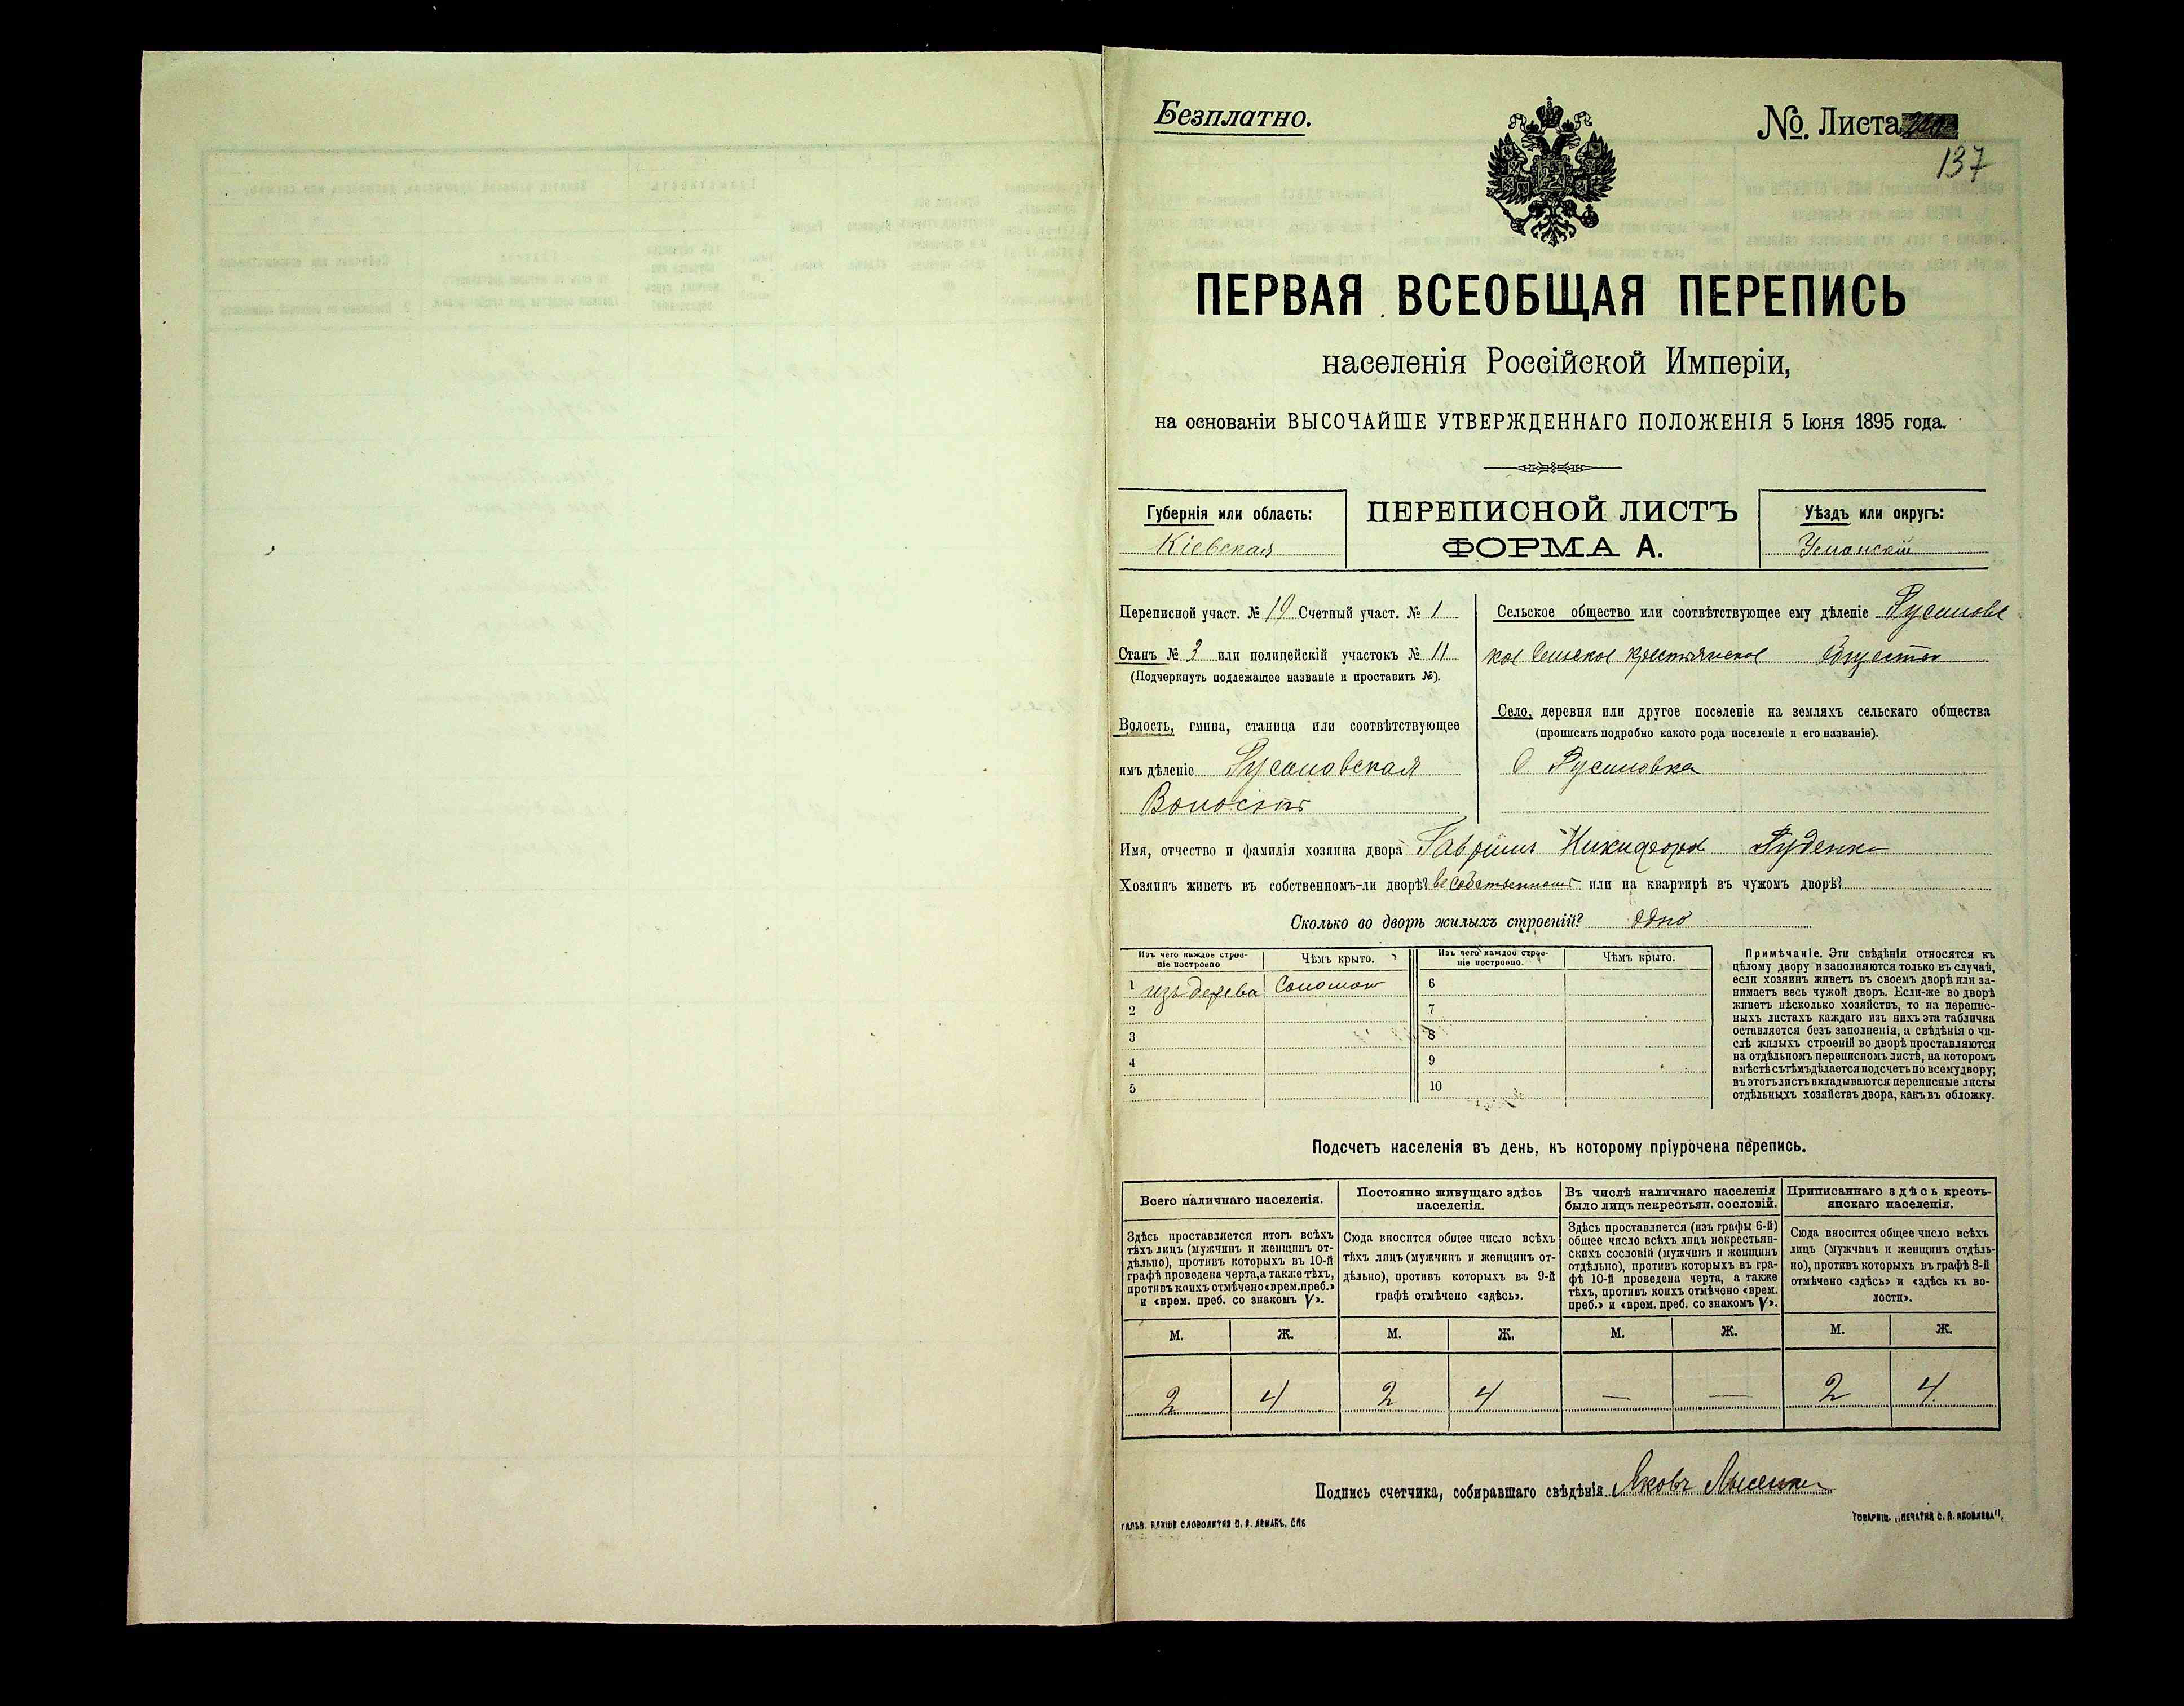 Безплатно.
№. Листа
137
ПЕРВАЯ ВСЕОБЩАЯ ПЕРЕПИСЬ
населенія Россійской Имперіи,
на основаніи ВЫСОЧАЙШЕ УТВЕРЖДЕННАГО ПОЛОЖЕНІЯ 5 Іюня 1895 года.
Губернія или область:
Кіевская
ПЕРЕПИСНОЙ ЛИСТЪ
ФОРМА А.
Уѣздъ или округъ:
Уманскій
Переписной участ. № 19 Счетный участ. № 1
Станъ № 3 или полицейскій участокъ № 11
(Подчеркнуть подлежащее названіе и проставить №).
Волость, гмина, станица или соотвѣтствующее
имъ дѣленіе Русаловская
Волость
Сельское общество или соотвѣтствующее ему дѣленіе Русаловс
кое Сельское крестьянское Общество
Село, деревня или другое поселеніе на земляхъ сельскаго общества
(прописать подробно какого рода поселеніе и его названіе).
С. Русаловка
Имя, отчество и фамилія хозяина двора Гавріилъ Никифоров Руденко
Хозяинъ живетъ въ собственномъ-ли дворѣ? въ собственномъ или на квартирѣ въ чужомъ дворѣ?
Сколько во дворѣ жилыхъ строеній? одно
Изъ чего каждое строе-
ніе построено
Чѣмъ крыто.
Изъ чего каждое строе-
ніе построено.
Чѣмъ крыто.
1 изъ дерева Соломою 6
2 7
3 8
4 9
5 10
Примѣчаніе. Эти свѣдѣнія относятся къ
цѣлому двору и заполняются только въ случаѣ,
если хозяинъ живетъ въ своемъ дворѣ или за-
нимаетъ весь чужой дворъ. Если-же во дворѣ
живетъ нѣсколько хозяйствъ, то на перепис-
ныхъ листахъ каждаго изъ нихъ эта табличка
оставляется безъ заполненія, а свѣдѣнія о чи-
слѣ жилыхъ строеній во дворѣ проставляются
на отдѣльномъ переписномъ листѣ, на которомъ
вмѣстѣ съ тѣмъ дѣлается подсчетъ по всему двору;
въ этотъ листъ вкладываются переписные листы
отдѣльныхъ хозяйствъ двора, какъ въ обложку.
Подсчетъ населенія въ день, къ которому пріурочена перепись.
Всего наличнаго населенія.
Здѣсь проставляется итогъ всѣхъ
тѣхъ лицъ (мужчинъ и женщинъ от-
дѣльно), противъ которыхъ въ 10-й
графѣ проведена черта, а также тѣхъ,
противъ коихъ отмѣчено «врем. преб.»
и «врем. преб. со знакомъ V».
Постоянно живущаго здѣсь
населенія.
Сюда вносится общее число всѣхъ
тѣхъ лицъ (мужчинъ и женщинъ от-
дѣльно), противъ которыхъ въ 9-й
графѣ отмѣчено «здѣсь».
Въ числѣ наличнаго населенія
было лицъ некрестьян. сословій.
Здѣсь проставляется (изъ графы 6-й)
общее число всѣхъ лицъ некрестьян-
скихъ сословій (мужчинъ и женщинъ
отдѣльно), противъ которыхъ въ гра-
фѣ 10-й проведена черта, а также
тѣхъ, противъ коихъ отмѣчено «врем.
преб.» и «врем. преб. со знакомъ V».
Приписаннаго здѣсь кресть-
янскаго населенія.
Сюда вносится общее число всѣхъ
лицъ (мужчинъ и женщинъ отдѣль-
но), противъ которыхъ въ графѣ 8-й
отмѣчено «здѣсь» и «здѣсь къ во-
лости».
М. Ж. М. Ж. М. Ж. М. Ж.
2 4 2 4 — — 2 4.
Подпись счетчика, собиравшаго свѣдѣнія Яковъ
ГАЛЬВ. КЛИШЕ СЛОВОЛИТНИ О. И. ЛЕМАНЪ, СПБ
ТОВАРИЩ. „ПЕЧАТНЯ С. П. ЯКОВЛЕВА",